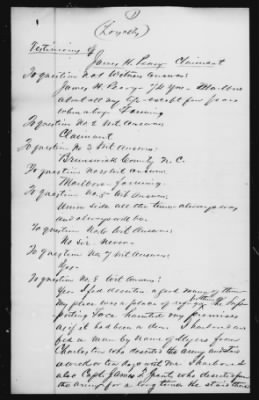 (Loyalty)
Testimony of
James H. Pearz Claimant
To question No 1 Witness Answers:
James H. Pearz 74 Yrs - Marlboro
about all my life except few years
when a boy Farming.
To question No. 2 Wit Answers
Claimant
To question No 3 Wit Answers:
Brunswick County N.C.
To question No 4 Wit Answers:
Marlboro - farming.
To question No. 5 Wit Answers:
Union side all the time always was
and always will be.
To question No. 6 Wit Answers:
No Sir - never -
To question No. 7 Wit Answers:
Yes -
To question No. 8 Wit Answers:
Yes I fed deserters a good many of them
My place was a place of refuge the
posting haunted my premises
as if it had been a den. I harbored and
fed a man by name of Myers from
Charleston who deserted the army and
a week or ten days with me I harbored
also Capt. James L. who deserted from
the army for a long time he staid there